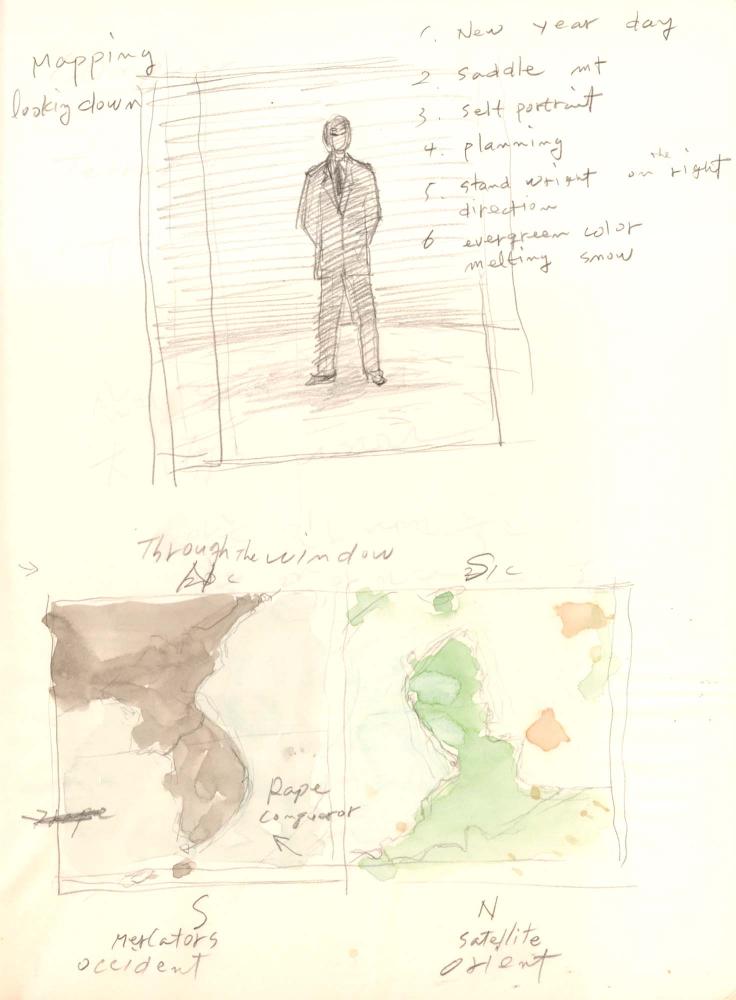 Mapping
looking down
1. New year day
2 saddle mt
3. self portrait
4. planning
5. stand wright on the right
direction
6 evergreen color
melting snow
Through the window
S
Rape
Conqueror
S
Mercators
occident
N
satellite
orient